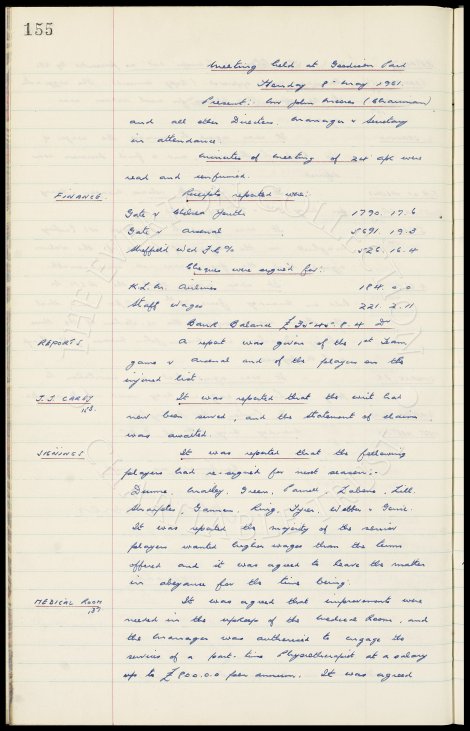 155
Meeting held at Goodison Park
Monday 8th May 1961.
Present: Mr John Moores (Chairman)
and all other Directors, Manager & Secretary
in attendance.
Minutes of Meeting of 24th Apl were
read and confirmed.
FINANCE. Receipts reported were:
Gate v Chelsea Youth 1790. 17. 6
Gate v Arsenal 5691. 19. 3
Sheffield Wed F.C % 526. 16. 4
Cheques were signed for:
K.L.M. Airlines 184. 0. 0
Staff Wages 221. 2. 11
Bank Balance £ Dr
REPORTS A report was given of the 1st Team
game v Arsenal and of the players on the
injured list.
J.J. CAREY It was reported that the writ had
158. now been served, and the statement of claim
was awaited.
SIGNINGS It was reported that the following
players had re-signed for next season:-
Dunne, Bradley, Green, Parnell, Labone, Lill,
Sharples, Gannon, King, Tyrer, Webber &
It was reported the majority of the senior
players wanted higher wages than the terms
offered and it was agreed to leave the matter
in abeyance for the time being.
MEDICAL ROOM It was agreed that improvements were
137 needed in the upkeep of the Medical Room, and
the Manager was authorised to engage the
services of a part-time Physiotherapist at a salary
up to £800.0.0 per annum. It was agreed
THE EVERTON COLLECTION